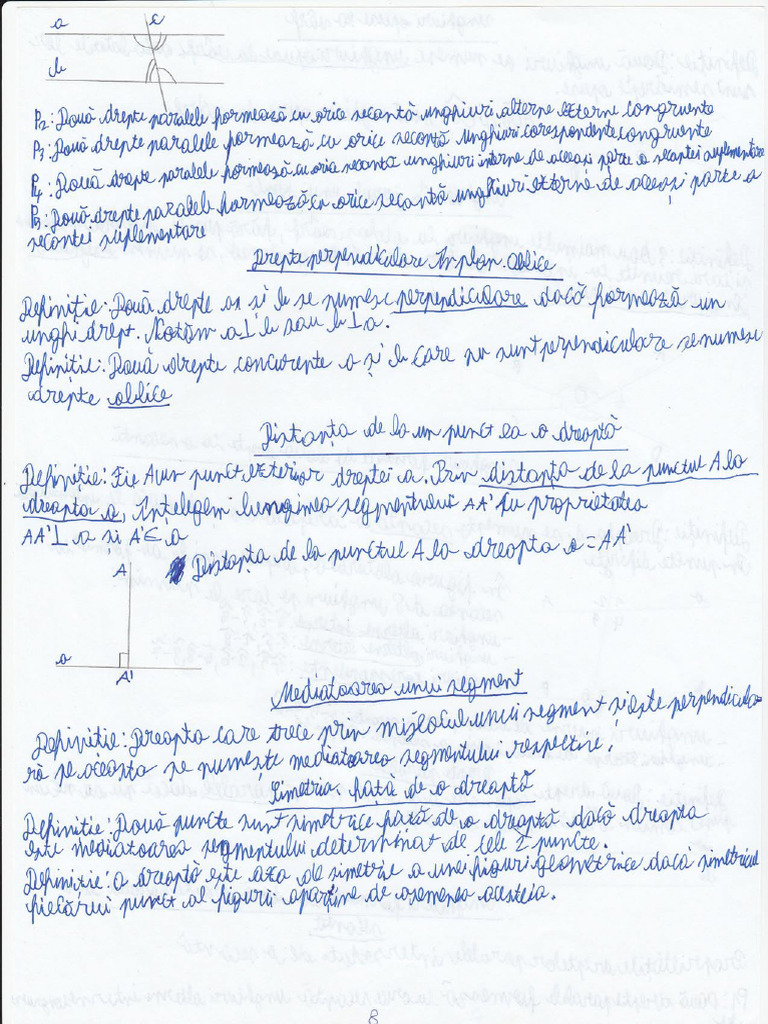 a
c
b
P2: Două drepte paralele formează cu orice secantă unghiuri alterne externe congruente
P3: Două drepte paralele formează cu orice secantă unghiuri corespondente congruente
P4: Două drepte paralele formează cu oria secantă unghiuri interne de aceași parte a secantei suplementare
P5: Două drepte paralele formează cu orice secantă unghiuri externe de aceași parte a
secantei suplementare
Drepte perpendiculare în plan. Oblice
Definiție: Două drepte a și b se numesc perpendiculare dacă formează un
unghi drept. Notăm a⊥b sau b⊥a.
Definiție: Două drepte concurente a și b care nu sunt perpendiculare se numesc
drepte oblice
Distanța de la un punct la o dreaptă
Definiție: Fie A un punct exterior dreptei a. Prin distanța de la punctul A la
dreapta a, înțelegem lungimea segmentului AA' cu proprietatea
AA'⊥a și A'∈a
Distanța de la punctul A la dreapta a = AA'
A
a
A'
Mediatoarea unui segment
Definiție: Dreapta care trece prin mijlocul unui segment și este perpendicula-
ră pe aceasta se numește mediatoarea segmentului respectiv.
Simetria față de o dreaptă
Definiție: Două puncte sunt simetrice față de o dreaptă dacă dreapta
este mediatoarea segmentului determinat de cele 2 puncte.
Definiție: O dreaptă este axa de simetrie a unei figuri geometrice daca simetricul
fiecărui punct al figurii aparține de asemenea acesteia.
8